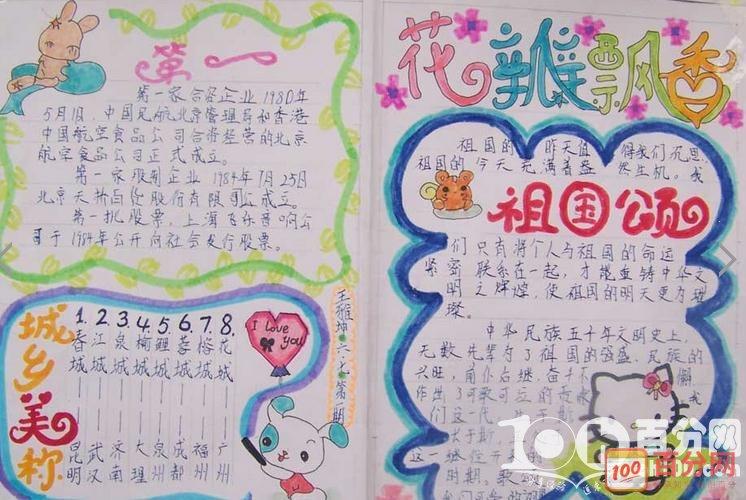 第一
第一家合资企业 1980年
5月1日,中国民航北京管理局和香港
中国航空食品公司合资经营的北京
航空食品公司正式成立。
第一家股制企业 1984年7月25日
北京天桥百货股份有限公司成立。
第一批股票,上海飞乐音响公
司于1984年公开向社会发行股票。
城乡美称
1. 春城——昆明
2. 江城——武汉
3. 泉城——济南
4. 榆城——大理
5. 鲤城——泉州
6. 蓉城——成都
7. 榕城——福州
8. 花城——广州
I love you
王雅坤 六 第一期
花瓣飘香
祖国的昨天值得我们沉思,
祖国的今天充满着盎然生机。我
祖国颂
们只有将个人与祖国的命运
紧密联系在一起,才能重铸中华文
明之辉煌,使祖国的明天更为璀
璨。
中华民族五千年文明史上,
无数先辈为了祖国的强盛,民族的
兴旺,前仆后继,奋斗不懈
作出了可歌可泣的贡献
们这一代
这一继往开
时期。
100百分网
100 百分网